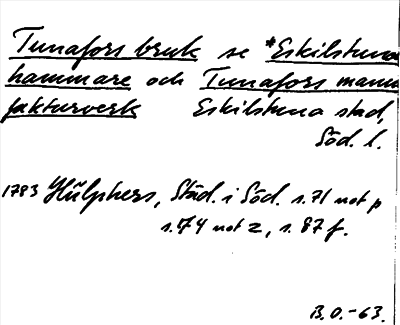 Tunafors bruk se *Eskilstuna
hammare och Tunafors manu
fakturverk Eskilstuna stad,
Söd. l.
1783 Hülphers, Städ. i Söd. s. 71 not p
s. 74 not z, s. 87 f.
B.O.-63.